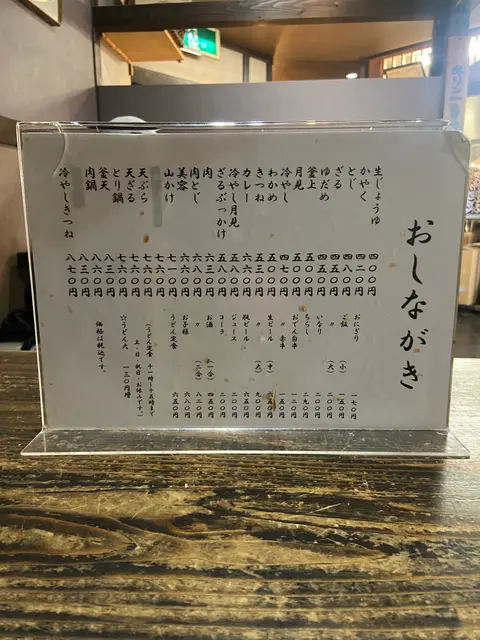 おしながき
生じょうゆ 四〇〇円
かやく 四二〇円
とじ 四八〇円
ざる 四五〇円
ゆだめ 四五〇円
釜上 五〇〇円
月見 五〇〇円
冷やし 四七〇円
わかめ 五〇〇円
きつね 五三〇円
カレー 五八〇円
冷やし月見 五八〇円
ざるぶっかけ 五八〇円
肉 六三〇円
肉とじ 六六〇円
美容 六六〇円
山かけ 七一〇円
天ぷら 七六〇円
天ざる 七六〇円
とり鍋 七六〇円
釜天 八六〇円
肉鍋 八三〇円
冷やしきつね 八七〇円
おにぎり 一七〇円
ご飯 （小） 一五〇円
〃 （大） 二〇〇円
いなり 二〇〇円
ちらし 二九〇円
おでん白串 一二〇円
〃 赤串 一五〇円
生ビール （中） 六五〇円
〃 （大） 九〇〇円
瓶ビール 六五〇円
ジュース 二〇〇円
コーラ 二〇〇円
お酒 （一合） 四五〇円
〃 （二合） 八二〇円
お子様 六八〇円
うどん定食 六五〇円
（うどん定食 十一時〜十五時まで
土・日・祝日・お休みです。）
☆うどん大 一三〇円増
価格は税込です。